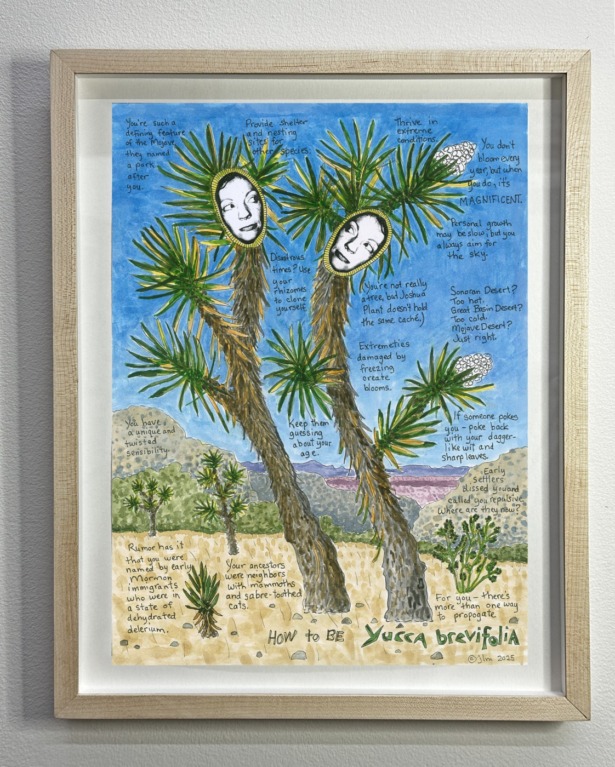 You're such a
defining feature
of the Mojave,
they named
a park
after
you.
Provide shelter
and nesting
sites for
other species.
Thrive in
extreme
conditions.
You don't
bloom every
year, but when
you do, it's
MAGNIFICENT.
Personal growth
may be slow, but you
always aim for
the sky.
Disastrous
times? Use
your
rhizomes
to clone
yourself.
(You're not really
a tree, but Joshua
Plant doesn't hold
the same caché.)
Sonoran Desert?
Too hot.
Great Basin Desert?
Too cold.
Mojave Desert?
Just right.
Extremeties
damaged by
freezing
create
blooms.
You have
a unique and
twisted
sensibility.
Keep them
guessing
about your
age.
If someone pokes
you - poke back
with your dagger-
like wit and
sharp leaves.
Early
settlers
dissed you and
called you repulsive
Where are they now?
Rumor has it
that you were
named by early
Mormon
immigrants
who were in
a state of
dehydrated
delerium.
Your ancestors
were neighbors
with mammoths
and sabre-toothed
cats.
For you - there's
more than one way
to propogate.
HOW to BE Yucca brevifolia
© jlm 2025